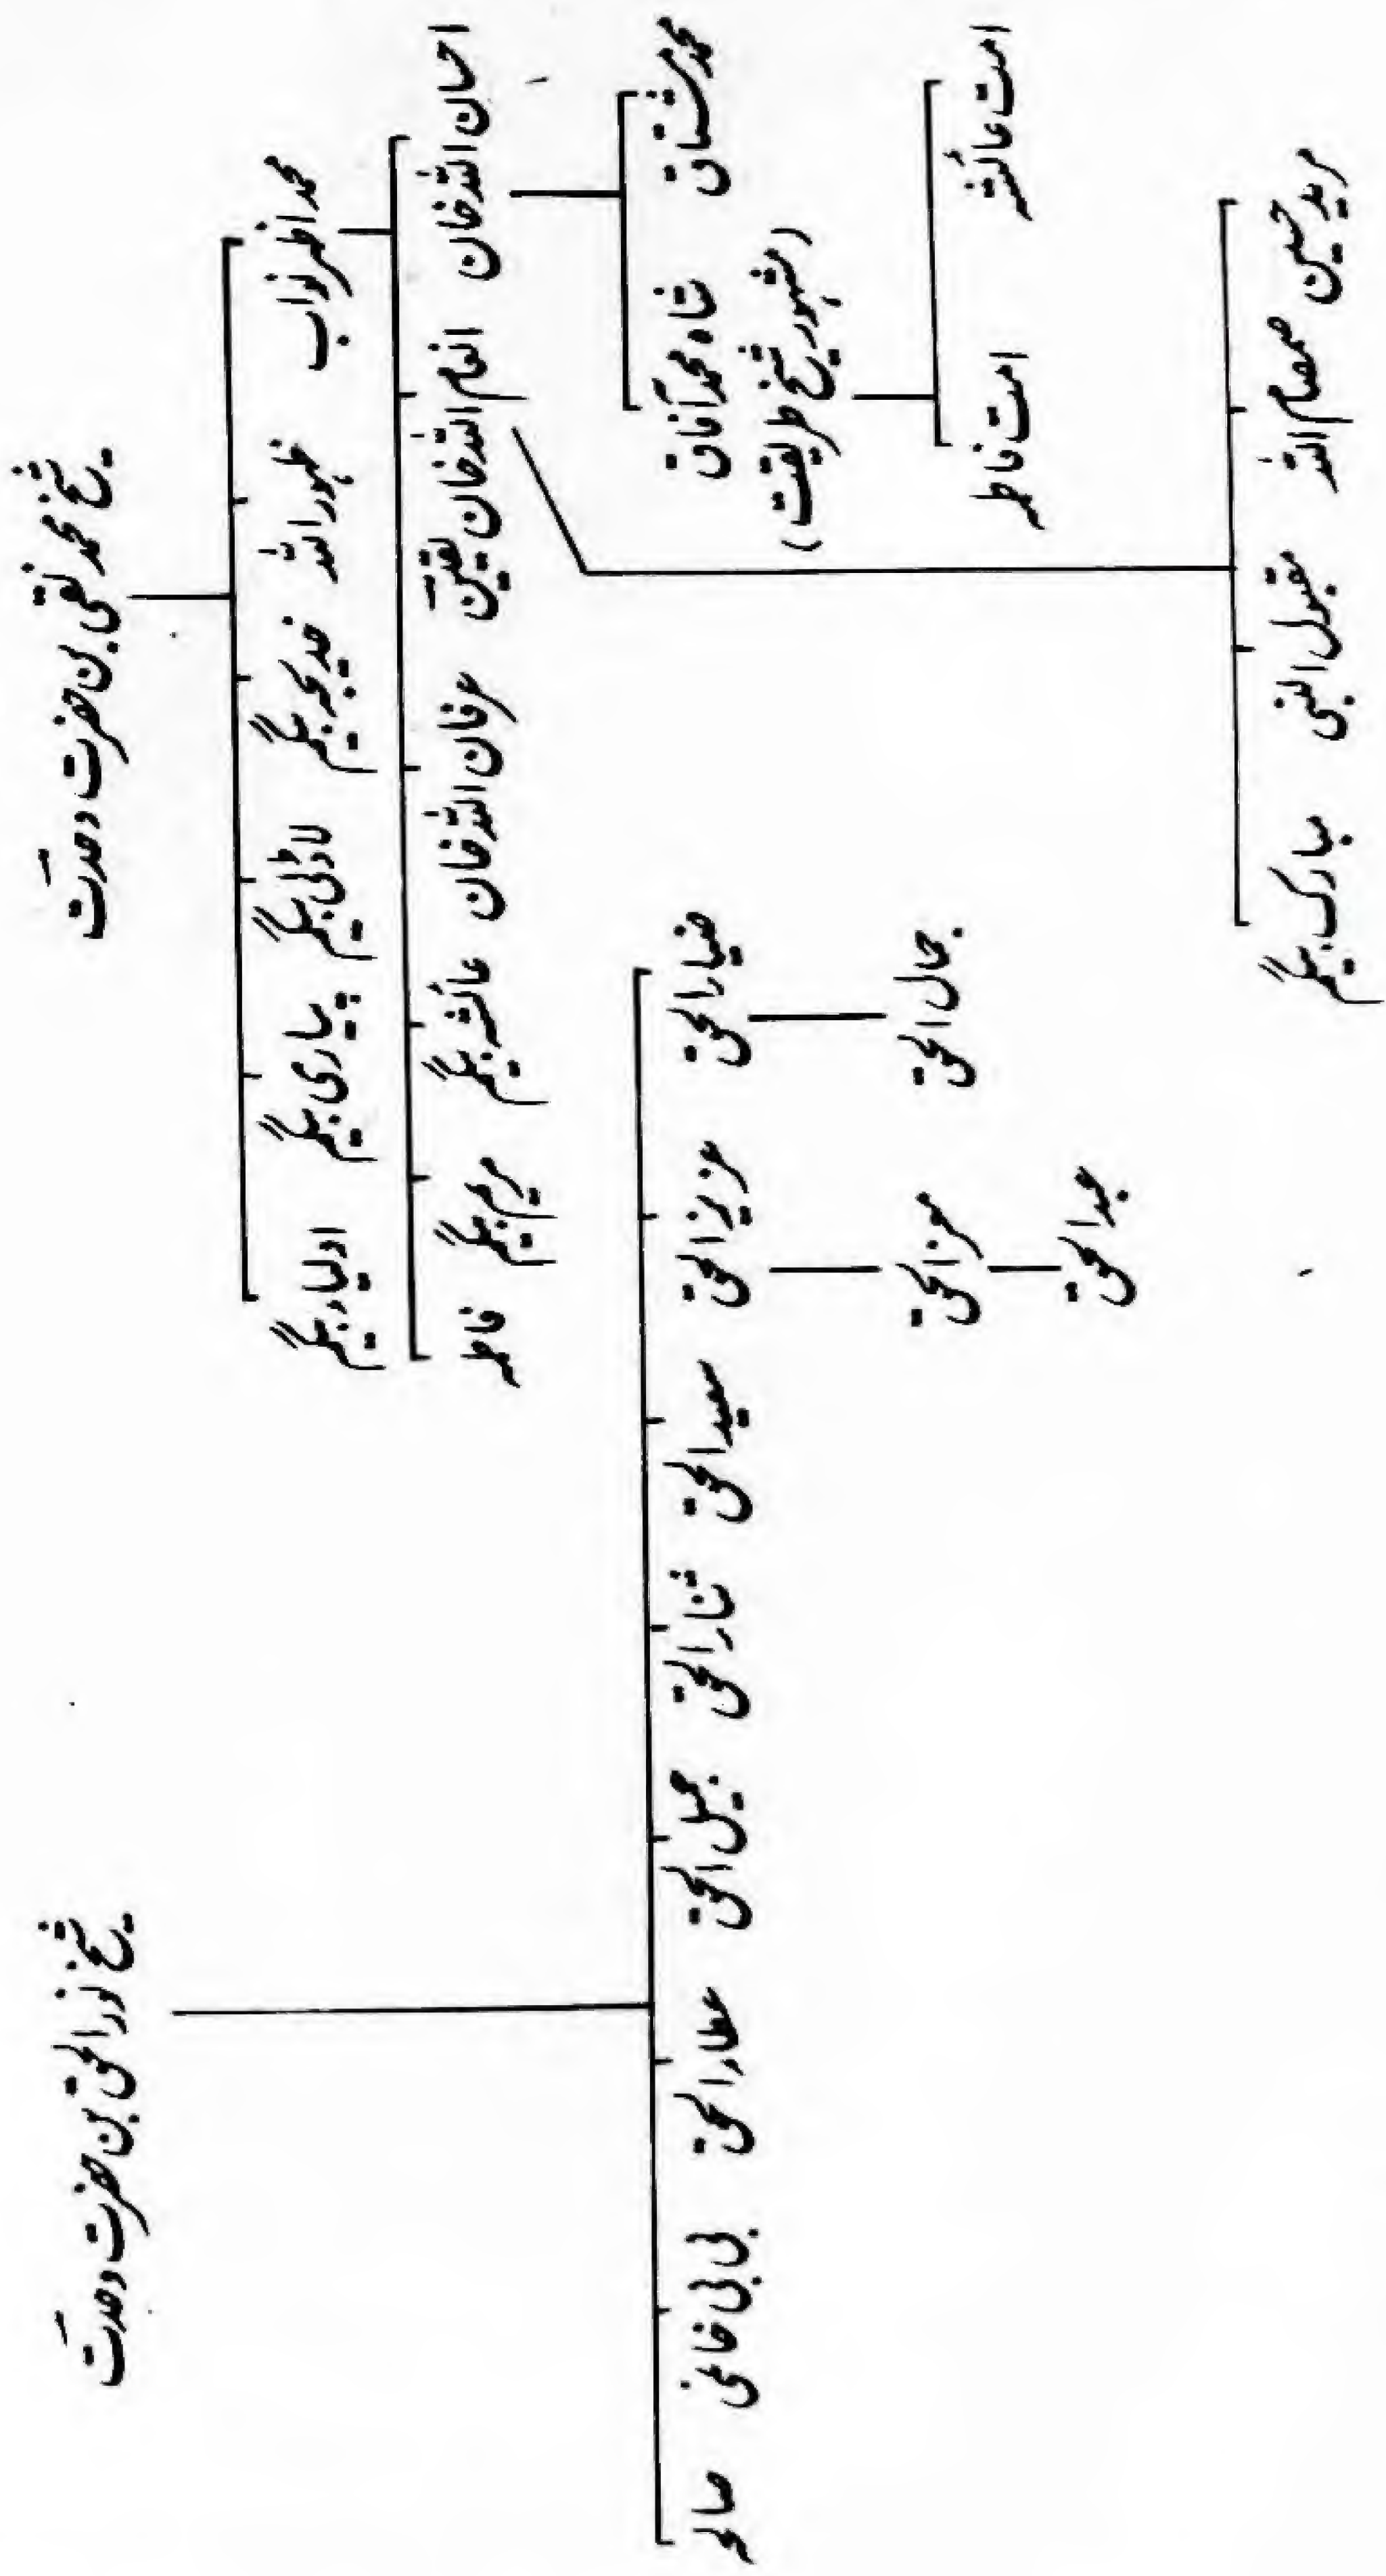 شیخ محمد نقی بن حضرت وحدتؔ
محمد اظہر نواب
ظہور اللہ
خدیجہ بیگم
لاڈلی بیگم
پیاری بیگم
اولیاء بیگم
احسان اللہ خان
انعام اللہ خان یقینؔ
عرفان اللہ خان
عائشہ بیگم
مریم بیگم
فاطمہ
محمد مشتاق
شاہ محمد آفاق
(مشہور شیخ طریقت)
امت عائشہ
امت فاطمہ
مرید حسین
صمصام اللہ
مقبول النبی
مبارک بیگم
شیخ نور الحق بن حضرت وحدتؔ
ضیاء الحق
عزیز الحق
سعید الحق
ثناء الحق
جمیل الحق
عطاء الحق
بی بی خانی
صالحہ
جمال الحق
معز الحق
عبد الحق